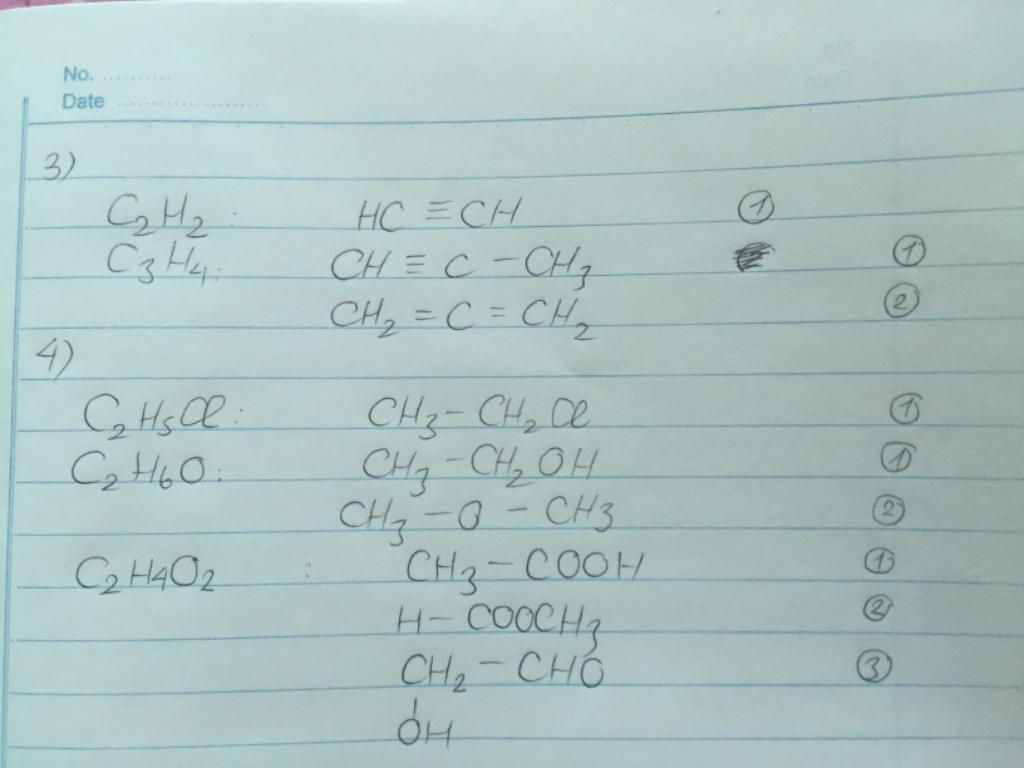 No. ..........
Date .....................
3)
C₂H₂ : HC ≡ CH ①
C₃H₄ : CH ≡ C – CH₃ ①
CH₂ = C = CH₂ ②
4)
C₂H₅Cl : CH₃ – CH₂Cl ①
C₂H₆O : CH₃ – CH₂OH ①
CH₃ – O – CH₃ ②
C₂H₄O₂ : CH₃ – COOH ①
H – COOCH₃ ②
CH₂ – CHO ③
|
OH